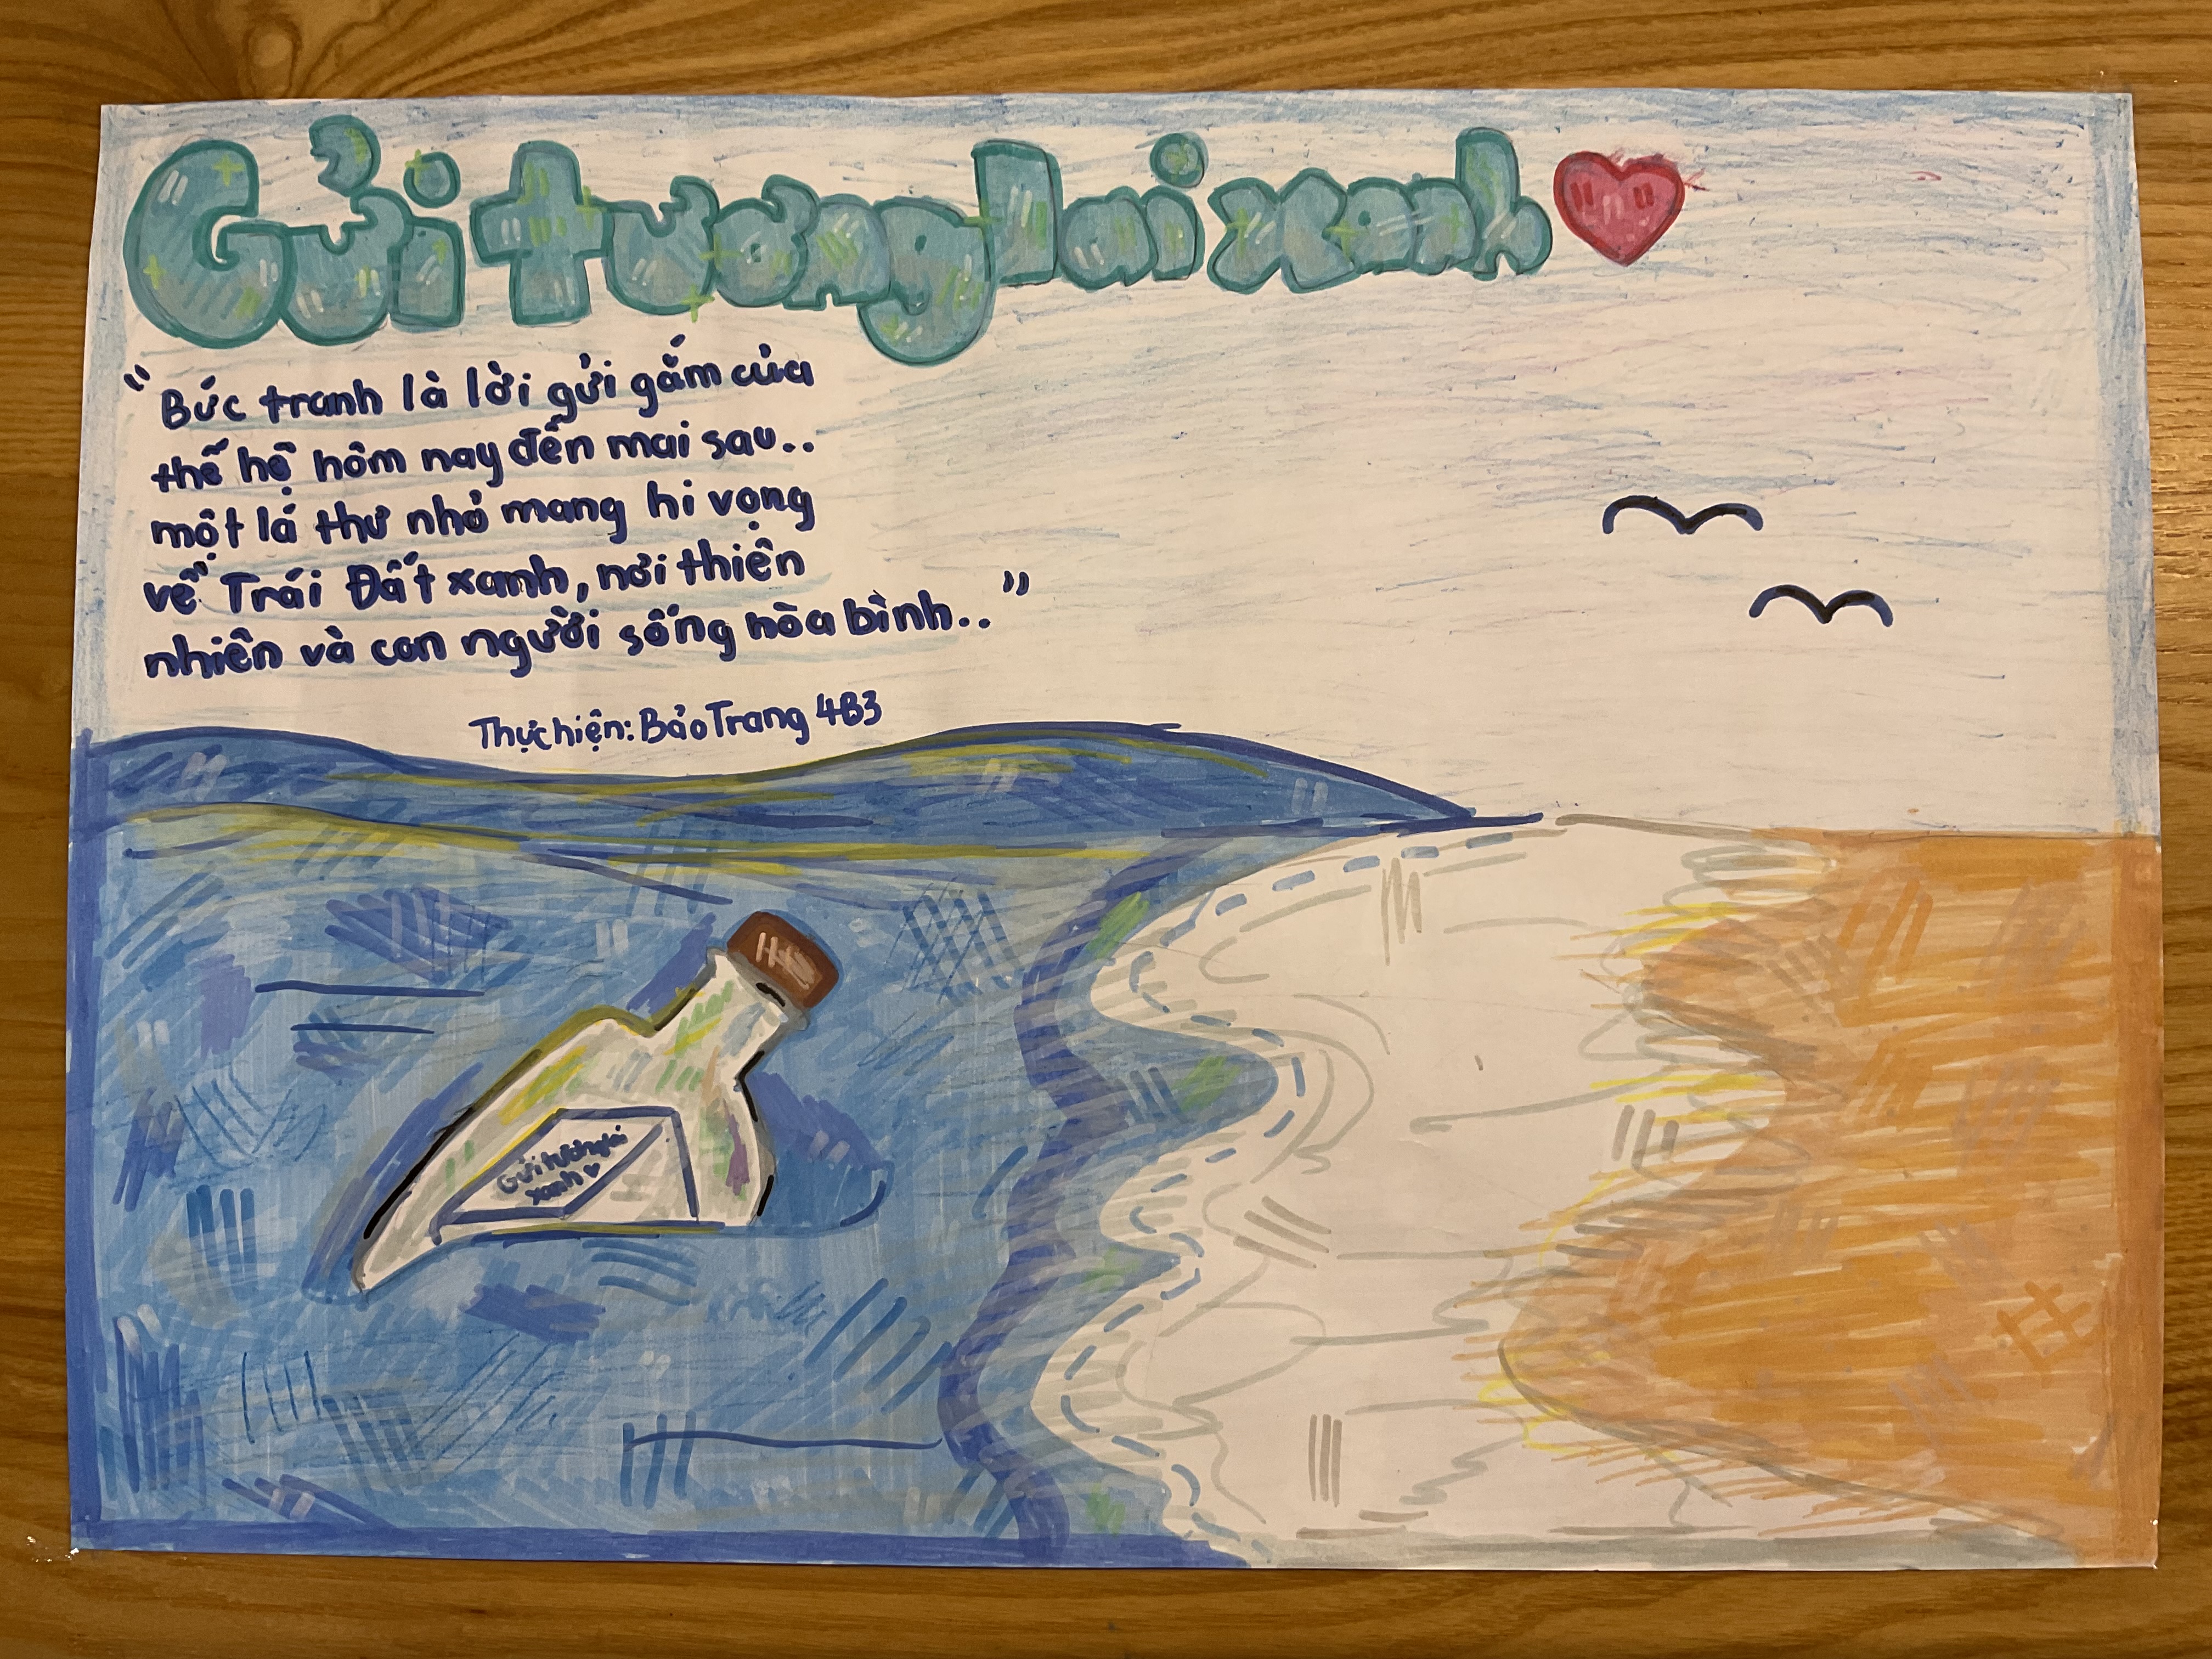 Gửi tương lai xanh
"Bức tranh là lời gửi gắm của
thế hệ hôm nay đến mai sau..
một lá thư nhỏ mang hi vọng
về Trái Đất xanh, nơi thiên
nhiên và con người sống hòa bình.."
Thực hiện: Bảo Trang 4B3
Gửi tương lai
xanh